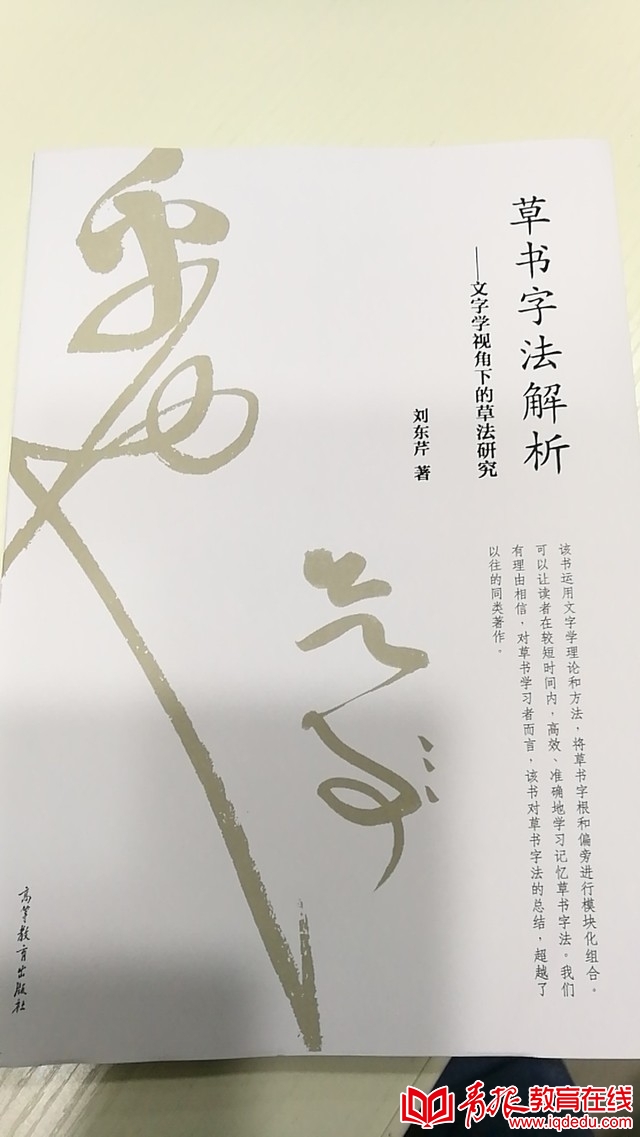 草书字法解析
——文字学视角下的草法研究
刘东芹 著
该书运用文字学理论和方法，将草书字根和偏旁进行模块化组合。
可以让读者在较短时间内，高效、准确地学习记忆草书字法。我们
有理由相信，对草书学习者而言，该书对草书字法的总结，超越了
以往的同类著作。
高等教育出版社
青报教育在线
www.iqdedu.com